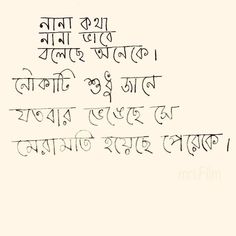 নানা কথা
নানা ভাবে
বলেছে অনেকে।
নৌকাটি শুধু জানে
যতবার ভেঙেছে সে
মেরামতি হয়েছে পেরেকে।